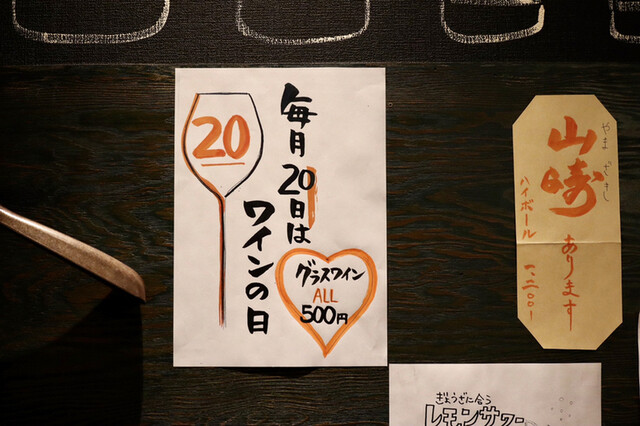 20
毎月20日は
ワインの日
グラスワイン
ALL
500円
やまざきし
山崎
あります
ハイボール 一、二〇〇-
ぎょうざに合う
レモンサワー